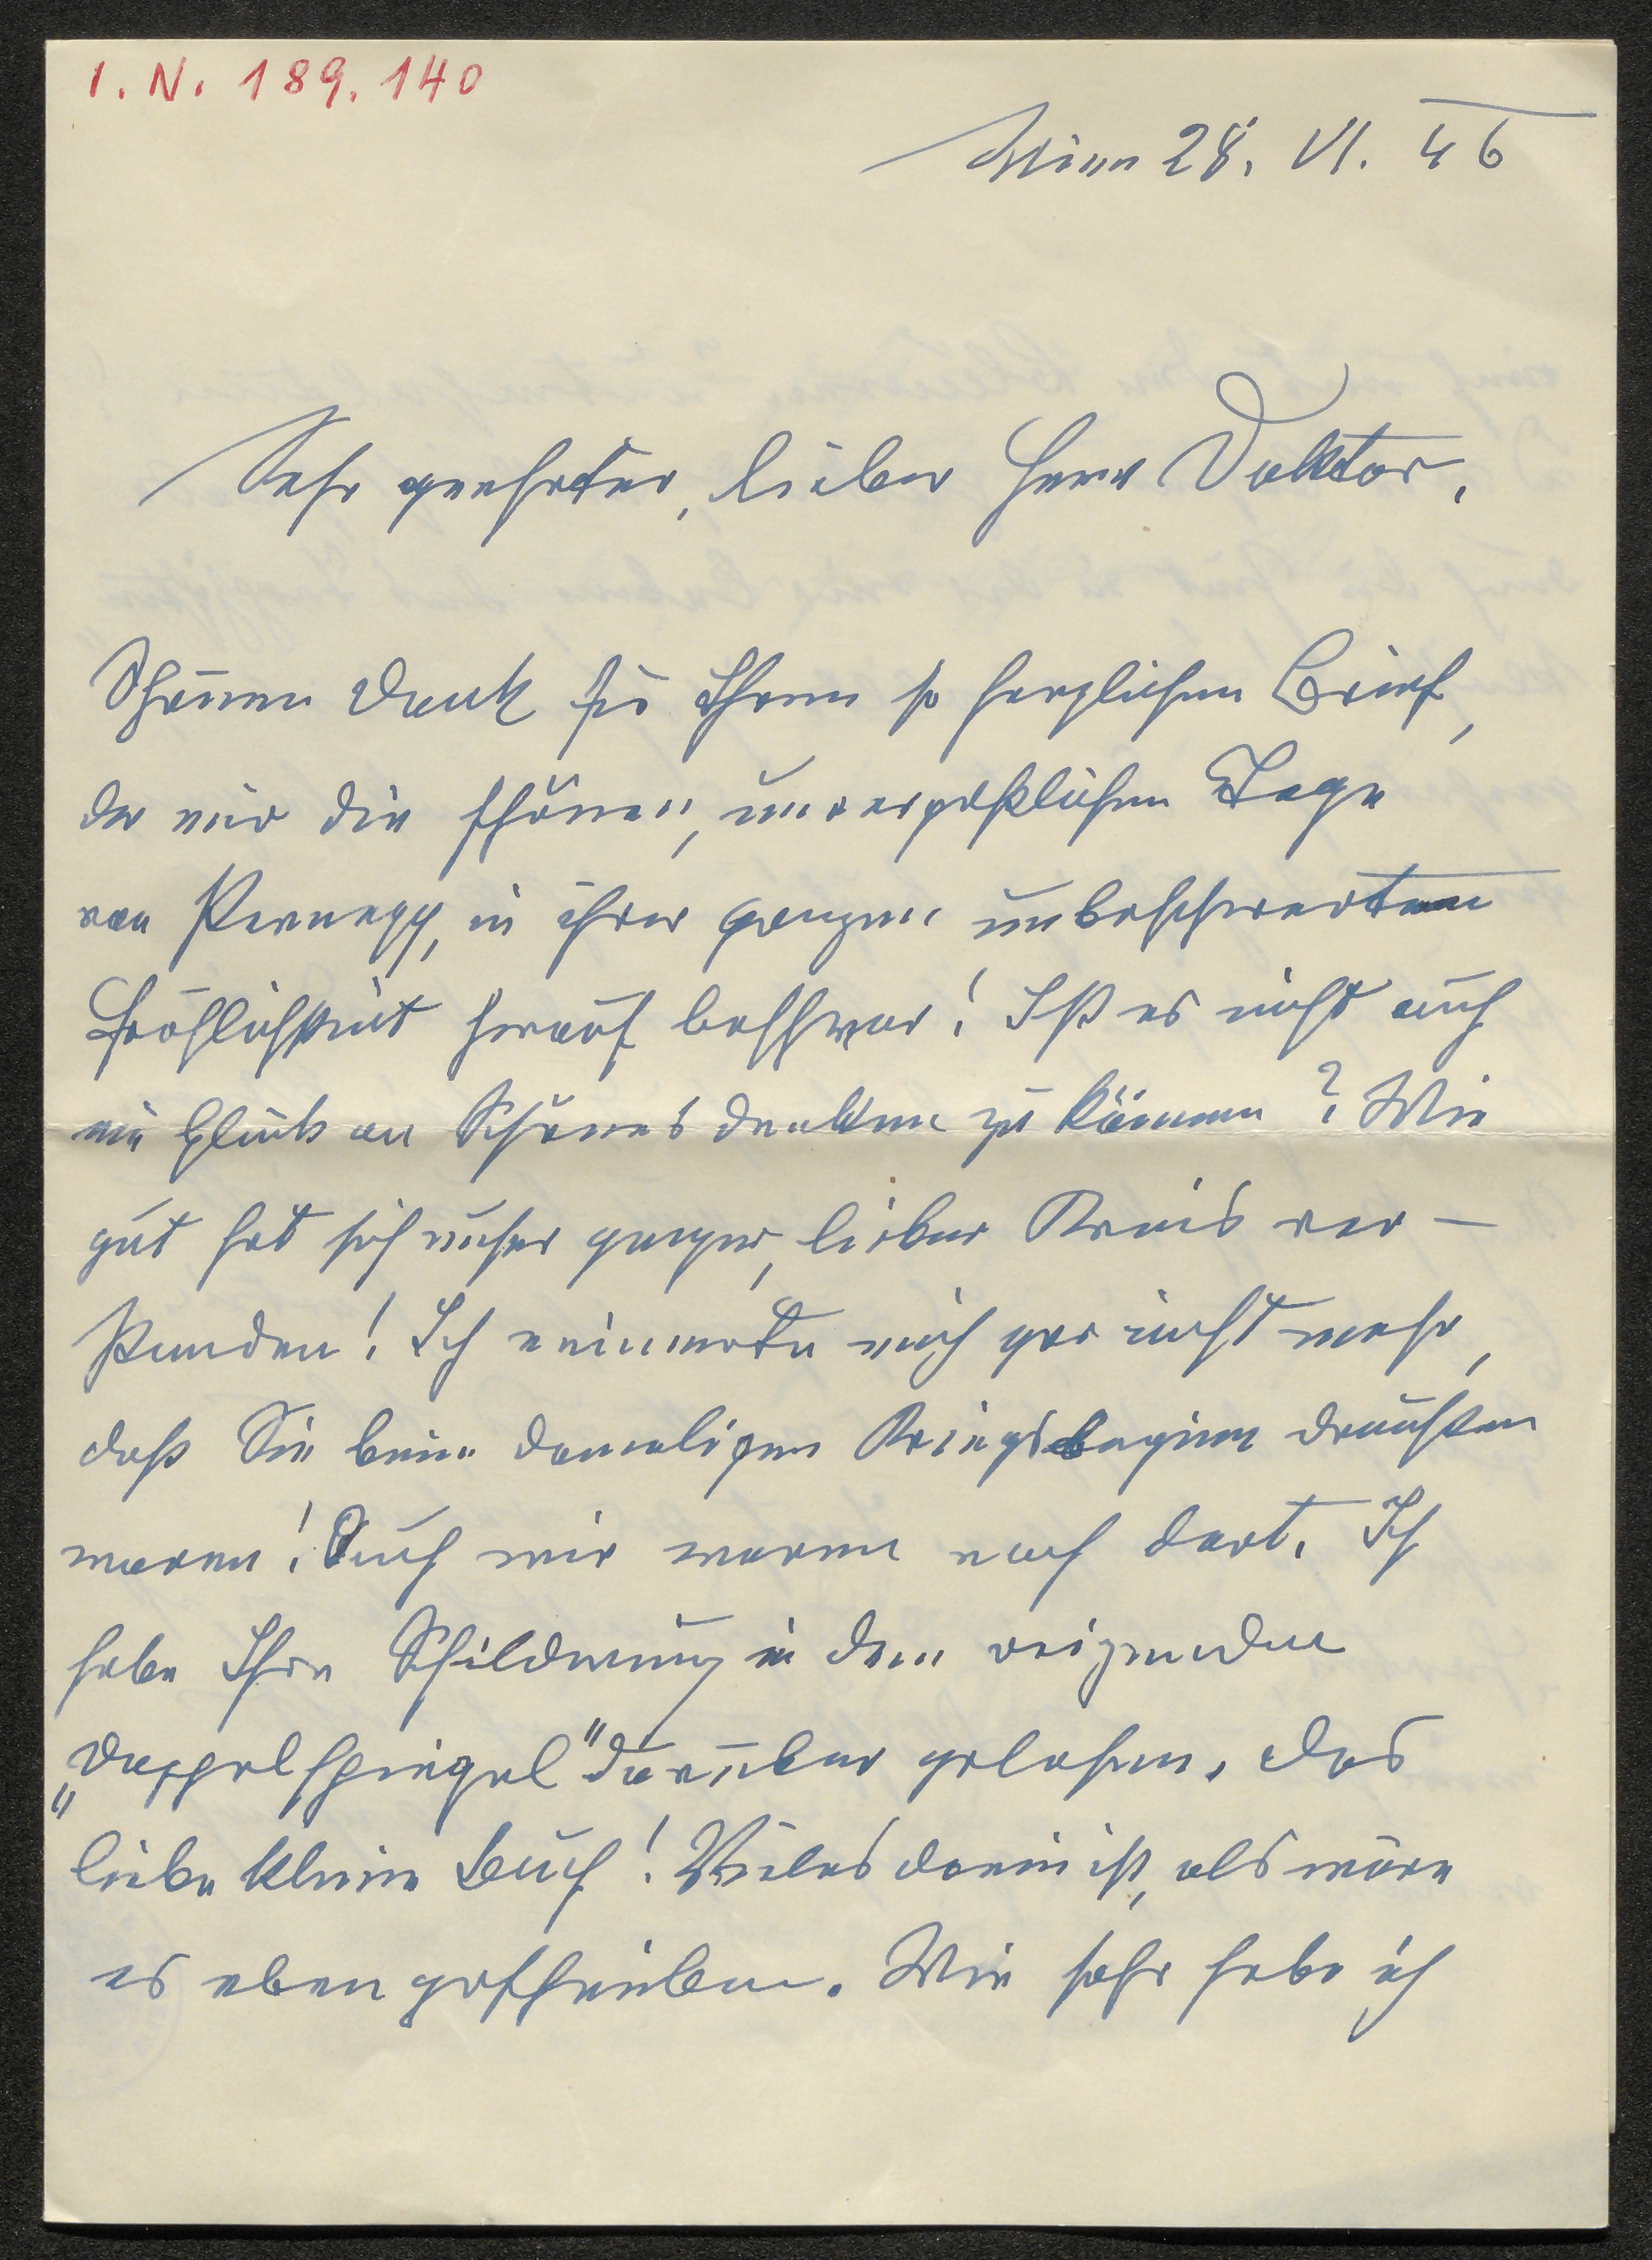 I. N. 189.140
Wien 28. VI. 46
Sehr geehrter, lieber Herr Doktor,
Schönen Dank für Ihren so herzlichen Brief,
der mir die schönen, unvergeßlichen Tage
von Pernegg, in ihrer ganzen unbeschwerten
Fröhlichkeit herauf beschwor! Ist es nicht auch
ein Glück an Schönes denken zu können? Wie
gut hat sich unser ganzer, lieber Kreis ver-
standen! Ich erinnerte mich gar nicht mehr,
daß Sie beim damaligen Kriegsbeginn draußen
waren! Auch wir waren noch dort. Ich
habe Ihre Schilderung in dem reizenden
„Doppelspiegel" darüber gelesen. Das
liebe kleine Buch! Vieles darin ist, als wäre
es eben geschrieben. Wie sehr habe ich